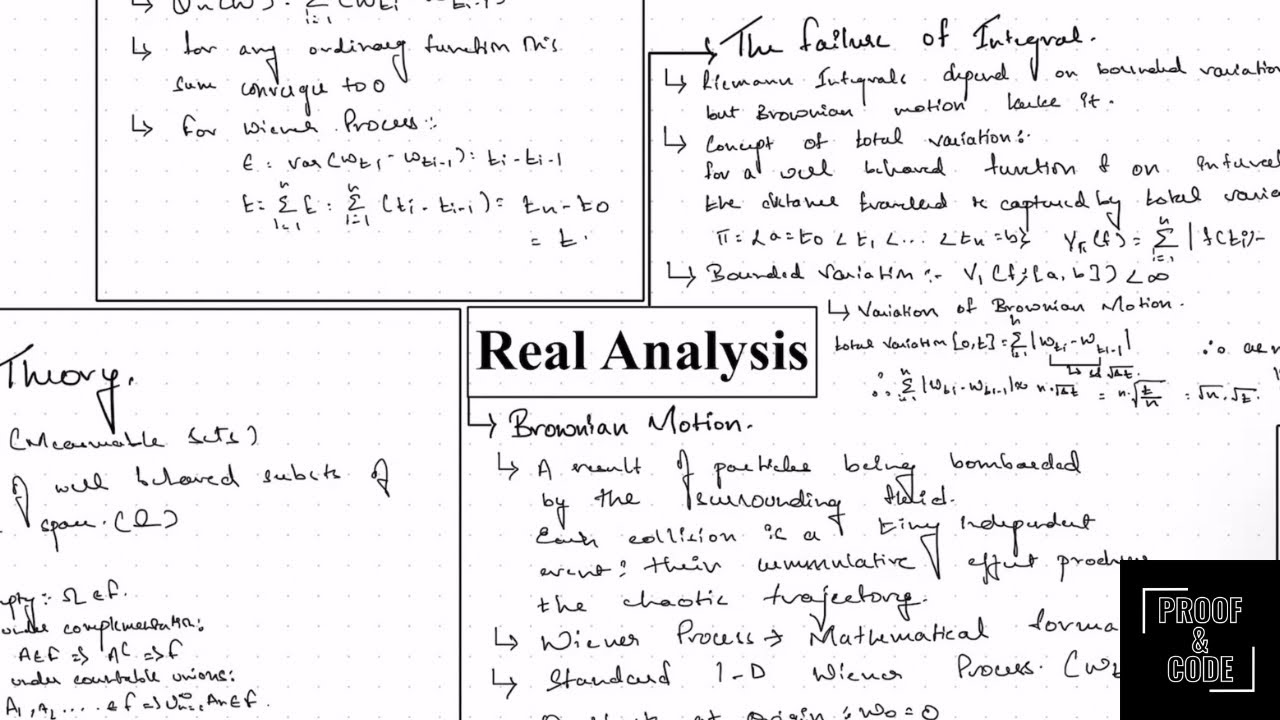 for any ordinary function this
sum converge to 0
For Wiener Process:
E: var(Wti - Wti-1): ti - ti-1
t = Σ E : Σ (ti - ti-1) = tn - t0
= t.
The failure of Integral.
Riemann Integrals depend on bounded variation
but Brownian motion lacks it.
Concept of total variation:
for a well behaved function f on interval
the distance traveled is captured by total varia
π = {a = t0 < t1 < ... < tn = b} Vπ(f) = Σ | f(ti) -
Bounded Variation:- V1(f; [a, b]) < ∞
Variation of Brownian Motion.
total variation [0,t] = Σ |Wti - Wti-1|
∴ Σ |Wti - Wti-1| ∝ n·√Δt = n·√(t/n) = √n·√t.
Real Analysis
Theory.
(Measurable sets)
of well behaved subsets of
space. (Ω)
mpty: Ω ∈ f.
under complementation:
A∈f => A^c => f
under countable unions:
A1, A2 .... ∈ f => ∪ An ∈ f.
Brownian Motion.
A result of particles being bombarded
by the surrounding fluid.
Each collision is a tiny independent
event: their cummulative effect produ
the chaotic trajectory.
Wiener Process → Mathematical forma
Standard 1-D Wiener Process. (Wt
at origin: W0 = 0
PROOF
&
CODE